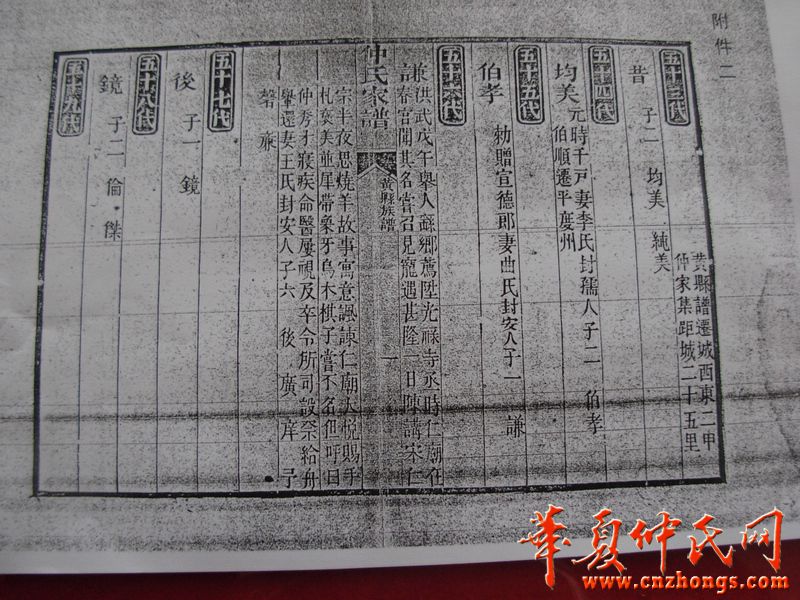 附件二
五十三代
昔 子二 均美 純美 黃縣譜遷城西東二甲
仲家集距城二十五里
五十四代
均美 元時千戸妻李氏封孺人子二 伯孝
伯順遷平度州
五十五代
伯孝 勑贈宣德郎妻曲氏封安人子一 謙
五十六代
謙 洪武戊午舉人蘇鄉薦陞光祿寺丞時仁廟在
春宮聞其名嘗召見寵遇甚隆一日陳講宋仁
仲氏家譜 黃縣族譜 一
宗半夜思燒羊故事寓意諷諌仁廟大悅賜手
札褒美並犀帶象牙烏木棋子嘗不名但呼曰
仲秀才寢疾命醫屢視及卒令所司設祭給舟
轝還妻王氏封安人子六 後 廣 庠
五十七代
後 子一 鏡
五十八代
鏡 子二 倫 傑
五十九代
華夏仲氏网
www.cnzhongs.com